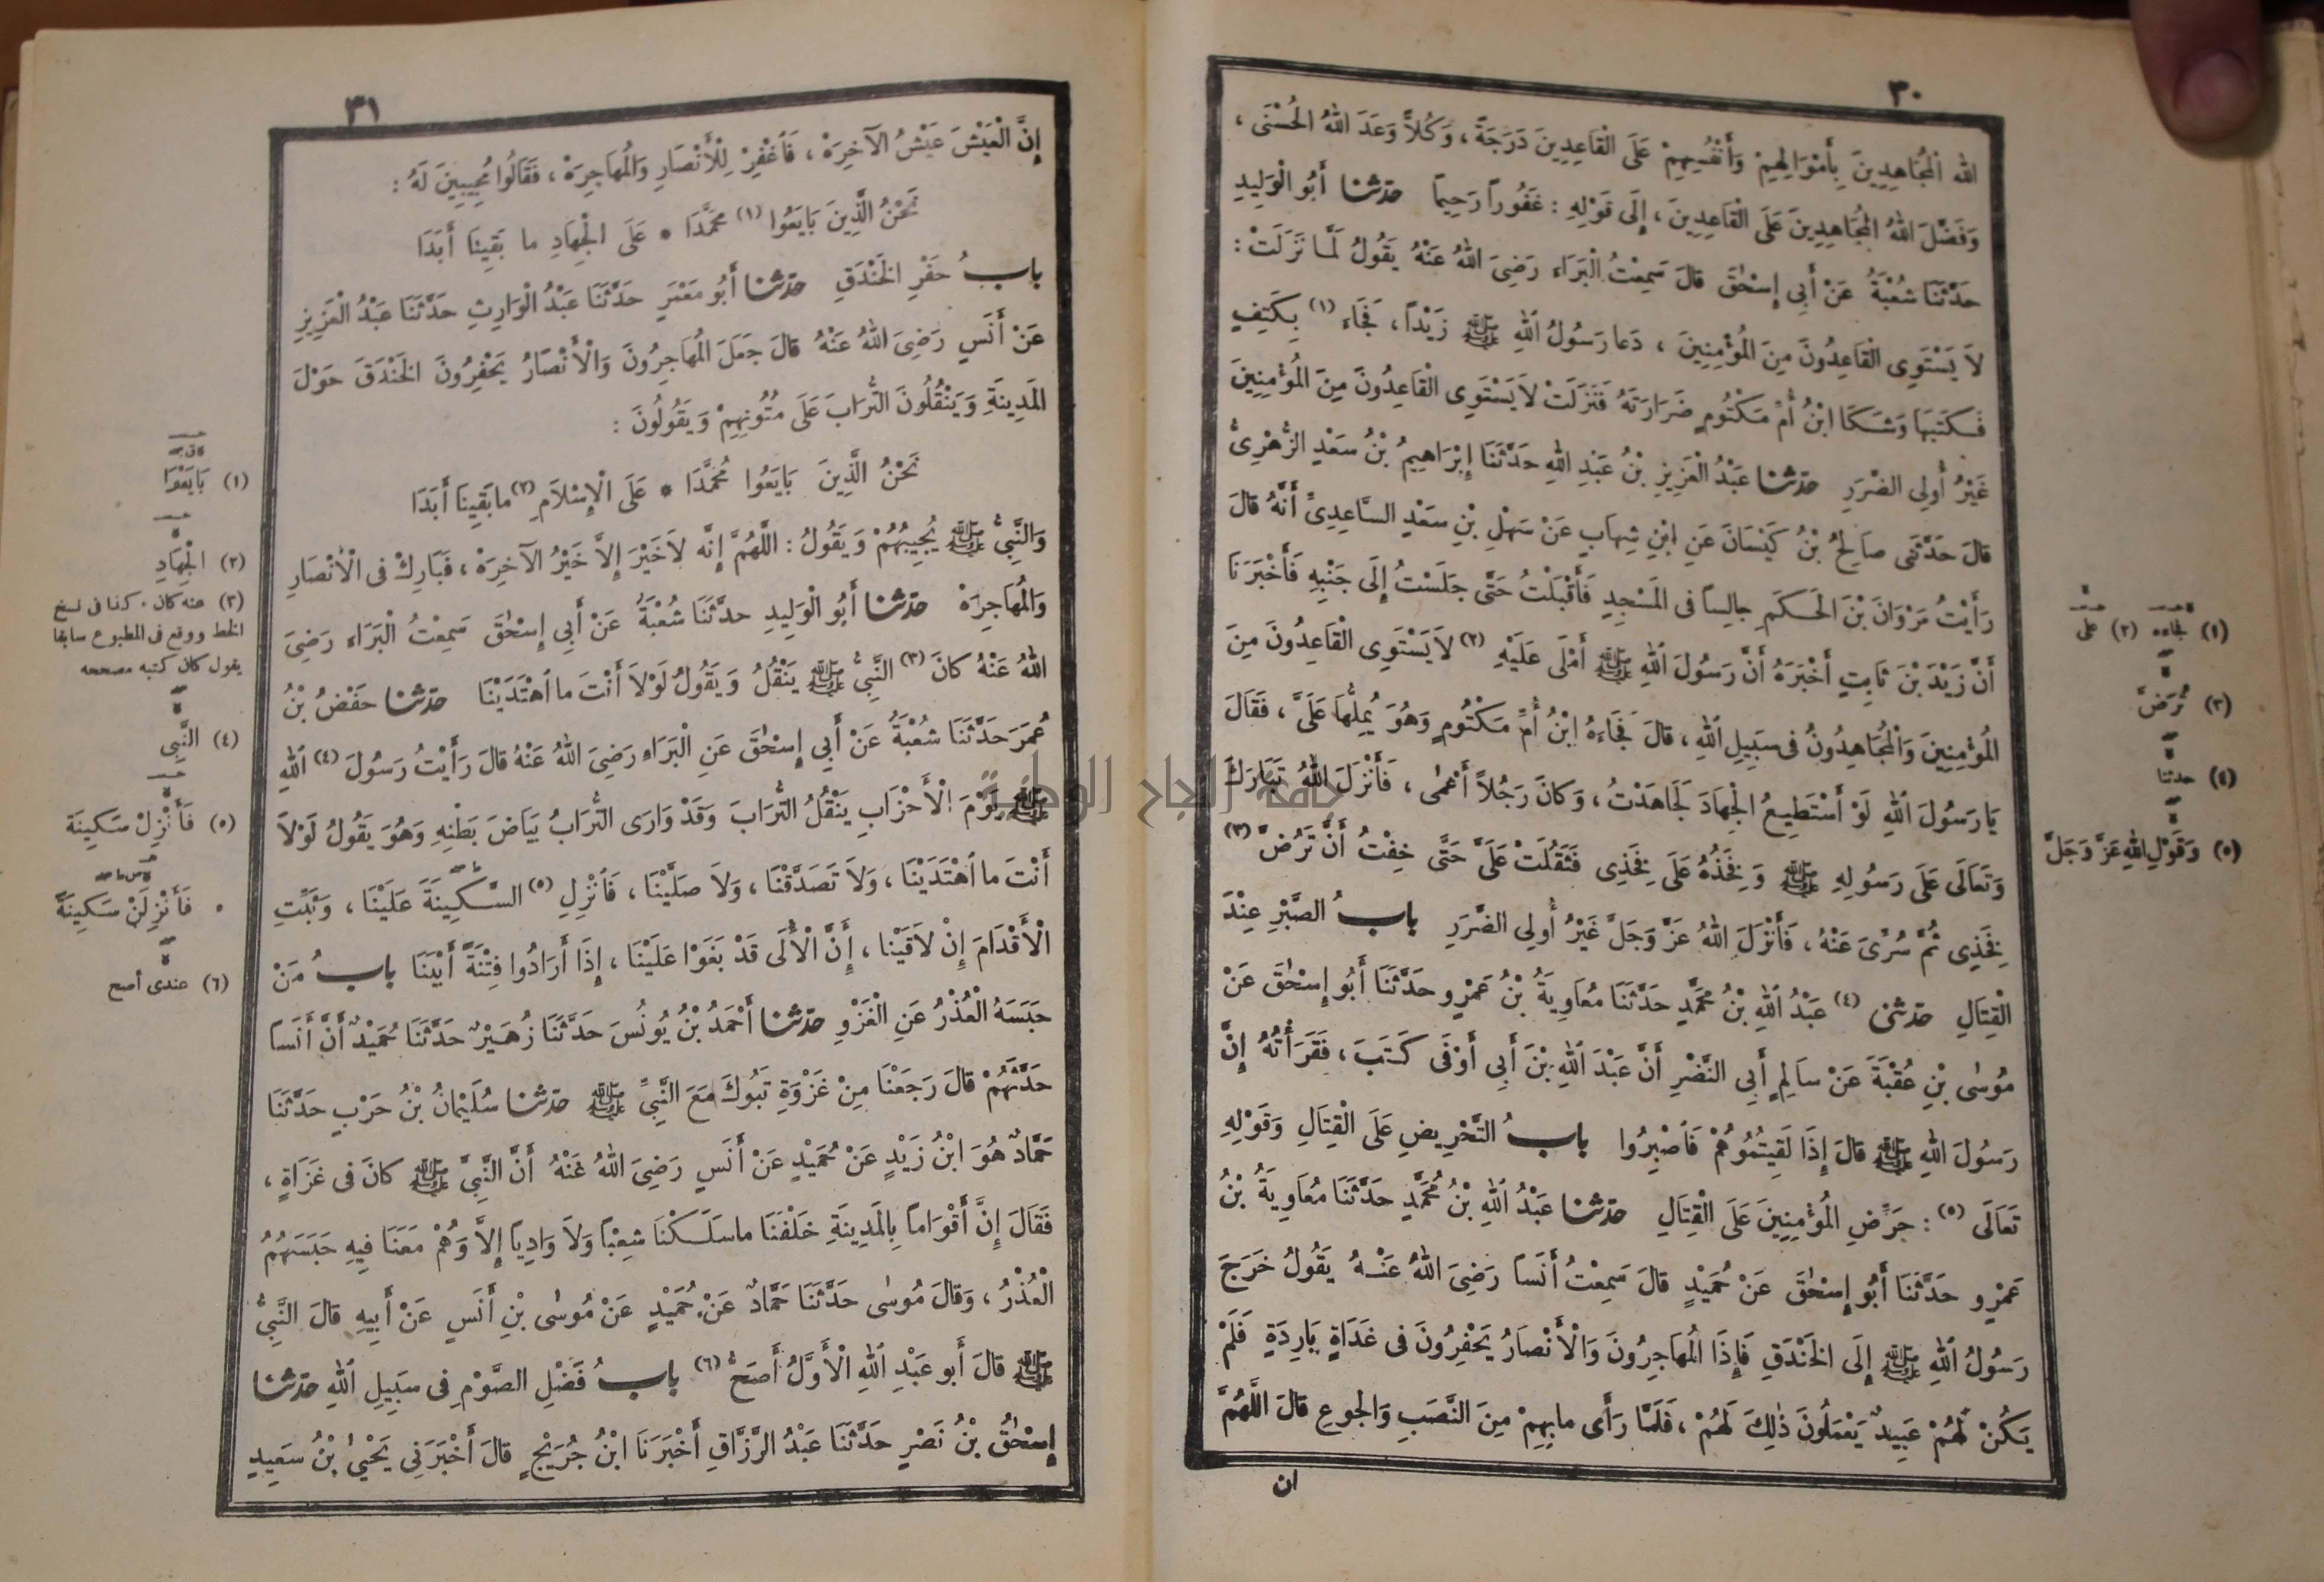 ٣٠
الله الْمُجَاهِدِينَ بِأَمْوَالِهِمْ وَأَنْفُسِهِمْ عَلَى الْقَاعِدِينَ دَرَجَةً ، وَكُلاًّ وَعَدَ اللهُ الْحُسْنَى ،
وَفَضَّلَ اللهُ الْمُجَاهِدِينَ عَلَى الْقَاعِدِينَ ، إِلَى قَوْلِهِ : غَفُوراً رَحِيماً حدثنا أَبُو الْوَلِيدِ
حَدَّثَنَا شُعْبَةُ عَنْ أَبِي إِسْحٰقَ قالَ سَمِعْتُ الْبَرَاء رَضِيَ اللهُ عَنْهُ يَقُولُ لَمَّا نَزَلَتْ :
لاَ يَسْتَوِى الْقَاعِدُونَ مِنَ الْمُؤْمِنِينَ ، دَعا رَسُولُ اللهِ ﷺ زَيْداً ، فَجَاء (١) بِكَتِفٍ
فَكَتَبَهَا وَشَكَا ابْنُ أُمِّ مَكْتُومٍ ضَرَارَتَهُ فَنَزَلَتْ لاَ يَسْتَوِى الْقَاعِدُونَ مِنَ الْمُؤْمِنِينَ
غَيْرُ أُولِى الضَّرَرِ حدثنا عَبْدُ الْعَزِيزِ بْنُ عَبْدِ اللهِ حَدَّثَنَا إِبْرَاهِيمُ بْنُ سَعْدٍ الزُّهْرِىُّ
قالَ حَدَّثَنِى صَالِحُ بْنُ كَيْسَانَ عَنِ ابْنِ شِهَابٍ عَنْ سَهْلِ بْنِ سَعْدٍ السَّاعِدِىِّ أَنَّهُ قالَ
رَأَيْتُ مَرْوَانَ بْنَ الْحَكَمِ جالِساً فى الْمَسْجِدِ فَأَقْبَلْتُ حَتَّى جَلَسْتُ إِلَى جَنْبِهِ فَأَخْبَرَنَا
أَنَّ زَيْدَ بْنَ ثَابِتٍ أَخْبَرَهُ أَنَّ رَسُولَ اللهِ ﷺ أَمْلَى عَلَيْهِ (٢) لاَ يَسْتَوِى الْقَاعِدُونَ مِنَ
الْمُؤْمِنِينَ وَالْمُجَاهِدُونُ فى سَبِيلِ اللهِ ، قالَ فَجَاءَهُ ابْنُ أُمِّ مَكْتُومٍ وَهُوَ يُمِلُّهَا عَلَىَّ ، فَقَالَ
يَا رَسُولَ اللهِ لَوْ أَسْتَطِيعُ الْجِهَادَ لَجَاهَدْتُ ، وَكانَ رَجُلاً أَعْمٰى ، فَأَنْزَلَ اللهُ تَبَارَكَ
وَتَعَالَى عَلَى رَسُولِهِ ﷺ وَفَخِذُهُ عَلَى فَخِذِى فَثَقُلَتْ عَلَىَّ حَتَّى خِفْتُ أَنْ تَرُضَّ (٣)
فَخِذِى ثُمَّ سُرِّىَ عَنْهُ ، فَأَنْزَلَ اللهُ عَزَّ وَجَلَّ غَيْرُ أُولِى الضَّرَرِ بابُ الصَّبْرِ عِنْدَ
الْقِتَالِ حدثنى (٤) عَبْدُ اللهِ بْنُ مُحَمَّدٍ حَدَّثَنَا مُعَاوِيَةُ بْنُ عَمْرٍو حَدَّثَنَا أَبُو إِسْحٰقَ عَنْ
مُوسٰى بْنِ عُقْبَةَ عَنْ سَالِمٍ أَبِى النَّضْرِ أَنَّ عَبْدَ اللهِ بْنَ أَبِى أَوْفَى كَتَبَ ، فَقَرَأْتُهُ إِنَّ
رَسُولَ اللهِ ﷺ قالَ إِذَا لَقِيتُمُوهُمْ فَاصْبِرُوا بابُ التَّحْرِيضِ عَلَى الْقِتَالِ وَقَوْلِهِ
تَعَالَى (٥) : حَرِّضِ الْمُؤْمِنِينَ عَلَى الْقِتَالِ حدثنا عَبْدُ اللهِ بْنُ مُحَمَّدٍ حَدَّثَنَا مُعَاوِيَةُ بْنُ
عَمْرٍو حَدَّثَنَا أَبُو إِسْحٰقَ عَنْ حُمَيْدٍ قالَ سَمِعْتُ أَنَساً رَضِىَ اللهُ عَنْهُ يَقُولُ خَرَجَ
رَسُولُ اللهِ ﷺ إِلَى الْخَنْدَقِ فَإِذَا الْمُهَاجِرُونَ وَالْأَنْصَارُ يَحْفِرُونَ فى غَدَاةٍ بَارِدَةٍ فَلَمْ
يَكُنْ لَهُمْ عَبِيدٌ يَعْمَلُونَ ذٰلِكَ لَهُمْ ، فَلَمَّا رَأَى ما بِهِمْ مِنَ النَّصَبِ وَالْجُوعِ قالَ اللَّهُمَّ
ان
(١) فجاءه (٢) على
(٣) تُرَضَّ
(٤) حدثنا
(٥) وَقَوْلِ اللهِ عَزَّ وَجَلَّ
٣١
إِنَّ الْعَيْشَ عَيْشُ الآخِرَهْ ، فَاغْفِرْ لِلْأَنْصَارِ وَالْمُهَاجِرَهْ ، فَقَالُوا مُجِيبِينَ لَهُ :
نَحْنُ الَّذِينَ بَايَعُوا (١) مُحَمَّدَا * عَلَى الْجِهَادِ ما بَقِينَا أَبَدَا
بابُ حَفْرِ الْخَنْدَقِ حدثنا أَبُو مَعْمَرٍ حَدَّثَنَا عَبْدُ الْوَارِثِ حَدَّثَنَا عَبْدُ الْعَزِيزِ
عَنْ أَنَسٍ رَضِىَ اللهُ عَنْهُ قالَ جَعَلَ الْمُهَاجِرُونَ وَالْأَنْصَارُ يَحْفِرُونَ الْخَنْدَقَ حَوْلَ
الْمَدِينَةِ وَيَنْقُلُونَ التُّرَابَ عَلَى مُتُونِهِمْ وَيَقُولُونَ :
نَحْنُ الَّذِينَ بَايَعُوا مُحَمَّدَا * عَلَى الْإِسْلاَمِ (٢) ما بَقِينَا أَبَدَا
وَالنَّبِىُّ ﷺ يُجِيبُهُمْ وَيَقُولُ : اللَّهُمَّ إِنَّه لاَ خَيْرَ إِلاَّ خَيْرُ الآخِرَهْ ، فَبَارِكْ فى الْأَنْصَارِ
وَالْمُهَاجِرَهْ حدثنا أَبُو الْوَلِيدِ حَدَّثَنَا شُعْبَةُ عَنْ أَبِى إِسْحٰقَ سَمِعْتُ الْبَرَاء رَضِىَ
اللهُ عَنْهُ كانَ (٣) النَّبِىُّ ﷺ يَنْقُلُ وَيَقُولُ لَوْلاَ أَنْتَ ما اهْتَدَيْنَا حدثنا حَفْصُ بْنُ
عُمَرَ حَدَّثَنَا شُعْبَةُ عَنْ أَبِى إِسْحٰقَ عَنِ الْبَرَاءِ رَضِىَ اللهُ عَنْهُ قالَ رَأَيْتُ رَسُولَ (٤) اللهِ
ﷺ يَوْمَ الْأَحْزَابِ يَنْقُلُ التُّرَابَ وَقَدْ وَارَى التُّرَابُ بَيَاضَ بَطْنِهِ وَهُوَ يَقُولُ لَوْلاَ
أَنْتَ ما اهْتَدَيْنَا ، وَلاَ تَصَدَّقْنَا ، وَلاَ صَلَّيْنَا ، فَأَنْزِلِ (٥) السَّكِينَةَ عَلَيْنَا ، وَثَبِّتِ
الْأَقْدَامَ إِنْ لاَقَيْنَا ، إِنَّ الْأُلَى قَدْ بَغَوْا عَلَيْنَا ، إِذَا أَرَادُوا فِتْنَةً أَبَيْنَا بابُ مَنْ
حَبَسَهُ الْعُذْرُ عَنِ الْغَزْوِ حدثنا أَحْمَدُ بْنُ يُونُسَ حَدَّثَنَا زُهَيْرٌ حَدَّثَنَا حُمَيْدٌ أَنَّ أَنَساً
حَدَّثَهُمْ قالَ رَجَعْنَا مِنْ غَزْوَةِ تَبُوكَ مَعَ النَّبِىِّ ﷺ حدثنا سُلَيْمَانُ بْنُ حَرْبٍ حَدَّثَنَا
حَمَّادٌ هُوَ ابْنُ زَيْدٍ عَنْ حُمَيْدٍ عَنْ أَنَسٍ رَضِىَ اللهُ عَنْهُ أَنَّ النَّبِىَّ ﷺ كانَ فى غَزَاةٍ ،
فَقَالَ إِنَّ أَقْوَاماً بِالْمَدِينَةِ خَلْفَنَا ما سَلَكْنَا شِعْباً وَلاَ وَادِياً إِلاَّ وَهُمْ مَعَنَا فِيهِ حَبَسَهُمُ
الْعُذْرُ ، وَقالَ مُوسٰى حَدَّثَنَا حَمَّادٌ عَنْ حُمَيْدٍ عَنْ مُوسٰى بْنِ أَنَسٍ عَنْ أَبِيهِ قالَ النَّبِىُّ
ﷺ قالَ أَبو عَبْدِ اللهِ الْأَوَّلُ أَصَحُّ (٦) بابُ فَضْلِ الصَّوْمِ فى سَبِيلِ اللهِ حدثنا
إِسْحٰقُ بْنُ نَصْرٍ حَدَّثَنَا عَبْدُ الرَّزَّاقِ أَخْبَرَنَا ابْنُ جُرَيْجٍ قالَ أَخْبَرَنِى يَحْيٰى بْنُ سَعِيدٍ
(١) بَايَعْنَا
(٢) الْجِهَادِ
(٣) عنه كان . كذا فى نسخ
الخط ووقع فى المطبوع سابقا
يقول كان كتبه مصححه
(٤) النَّبِى
(٥) فَأَنْزِلْ سَكِينَة
. فَأَنْزِلَنْ سَكِينَةً
(٦) عندى أصح
جامعة النجاح الوطنية